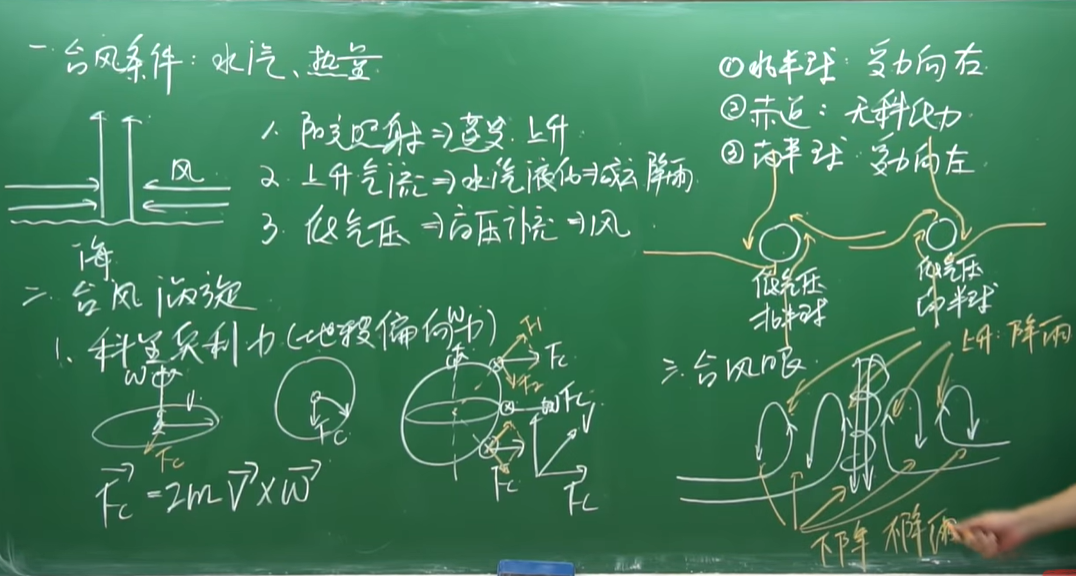 一 台风条件：水汽、热量
风
海
1. 阳光照射⇒蒸发 上升
2. 上升气流⇒水汽液化⇒成云降雨
3. 低气压⇒高压补充⇒风
二、台风涡旋
1. 科里奥利力(地转偏向力)
ω
V
Fc
Fc
Fc=2mV×ω
ω
F1
Fc
F2
Fc
Fc
ω
V
Fc
①北半球：受力向右
②赤道：无科氏力
③南半球：受力向左
低气压
北半球
低气压
南半球
三、台风眼
上升：降雨
下降 不降雨